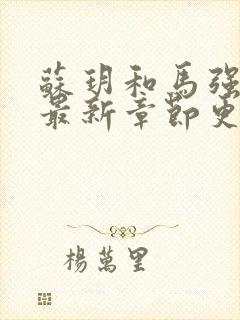 蘇玥和馬強
最新章節更
楊萬里